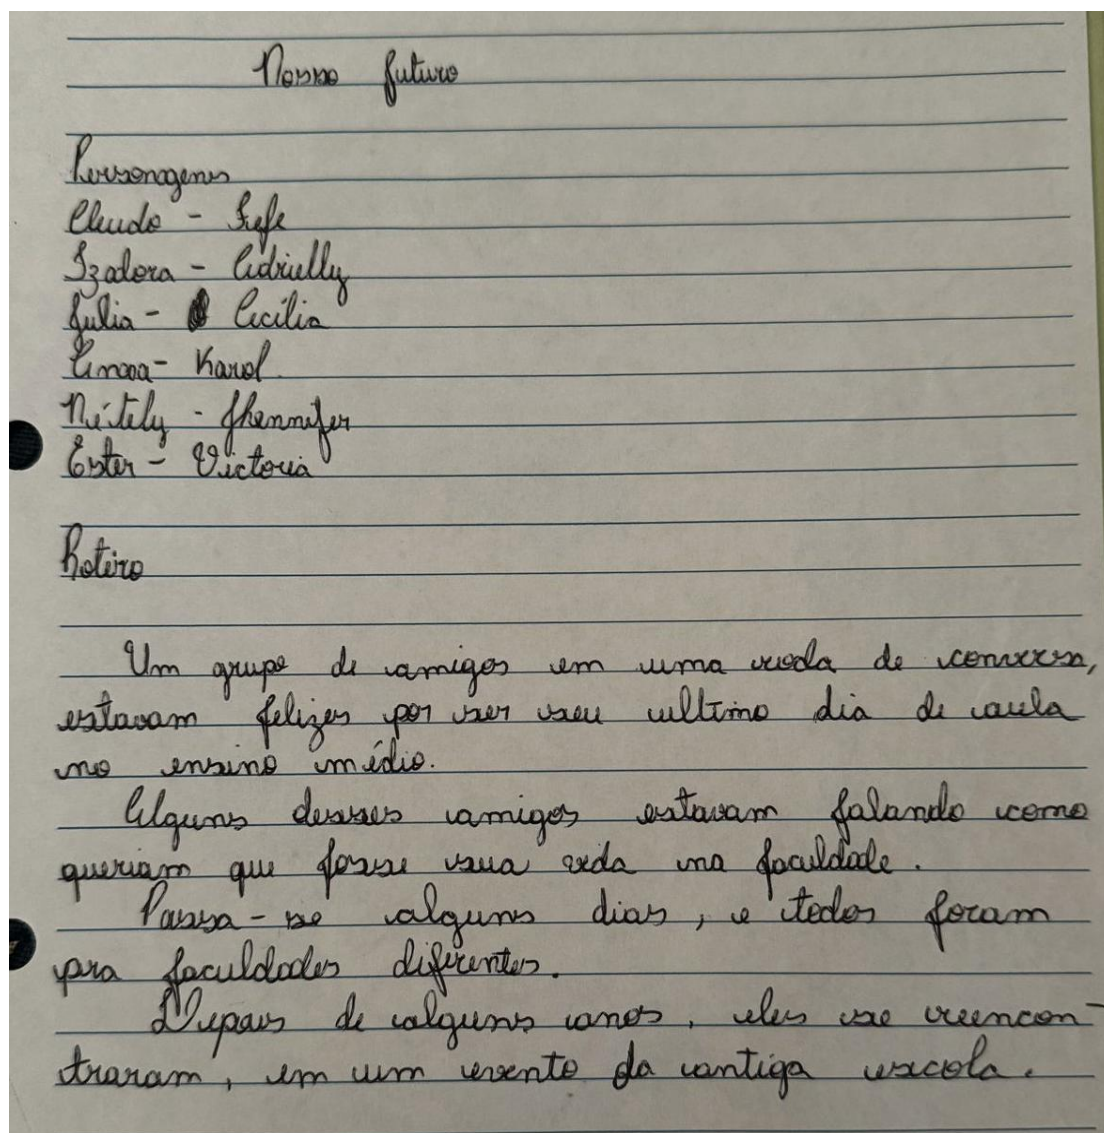 Nosso futuro
Personagens
Cleudo - Jefe
Izadora - Adrielly
Julia - Cecília
Karol
- Jhennifer
Ester - Victoria
Roteiro
Um grupo de amigos em uma roda de conversa,
estavam felizes por ser seu ultimo dia de aula
no ensino médio.
Alguns desses amigos estavam falando como
queriam que fosse sua vida na faculdade.
Passa-se alguns dias, e todos foram
pra faculdades diferentes.
Depois de alguns anos, eles se reencon-
traram, em um evento da antiga escola.